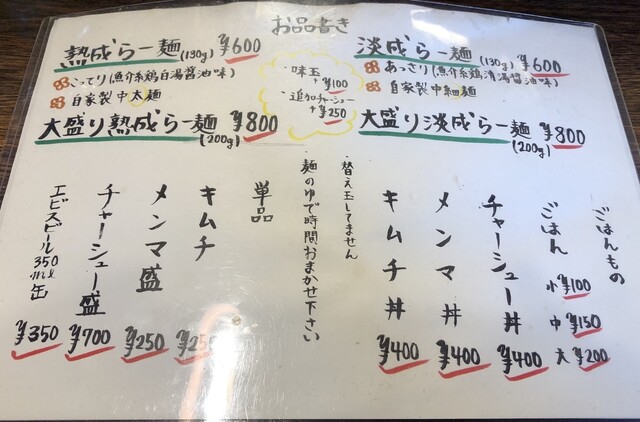 お品書き
熟成らー麺(130g) ¥600
こってり(魚介系鶏白湯醤油味)
自家製中太麺
大盛り熟成らー麺 ¥800
(200g)
味玉
+¥100
・追加チャーシュー
+¥250
淡成らー麺(130g) ¥600
あっさり(魚介系鶏清湯醤油味)
自家製中細麺
大盛り淡成らー麺 ¥800
(200g)
ごはんもの
ごはん 小¥100
中¥150
大¥200
チャーシュー丼 ¥400
メンマ丼 ¥400
キムチ丼 ¥400
・替え玉してません
・麺のゆで時間おまかせ下さい
単品
キムチ ¥250
メンマ盛 ¥250
チャーシュー盛 ¥700
エビスビール350ml缶 ¥350